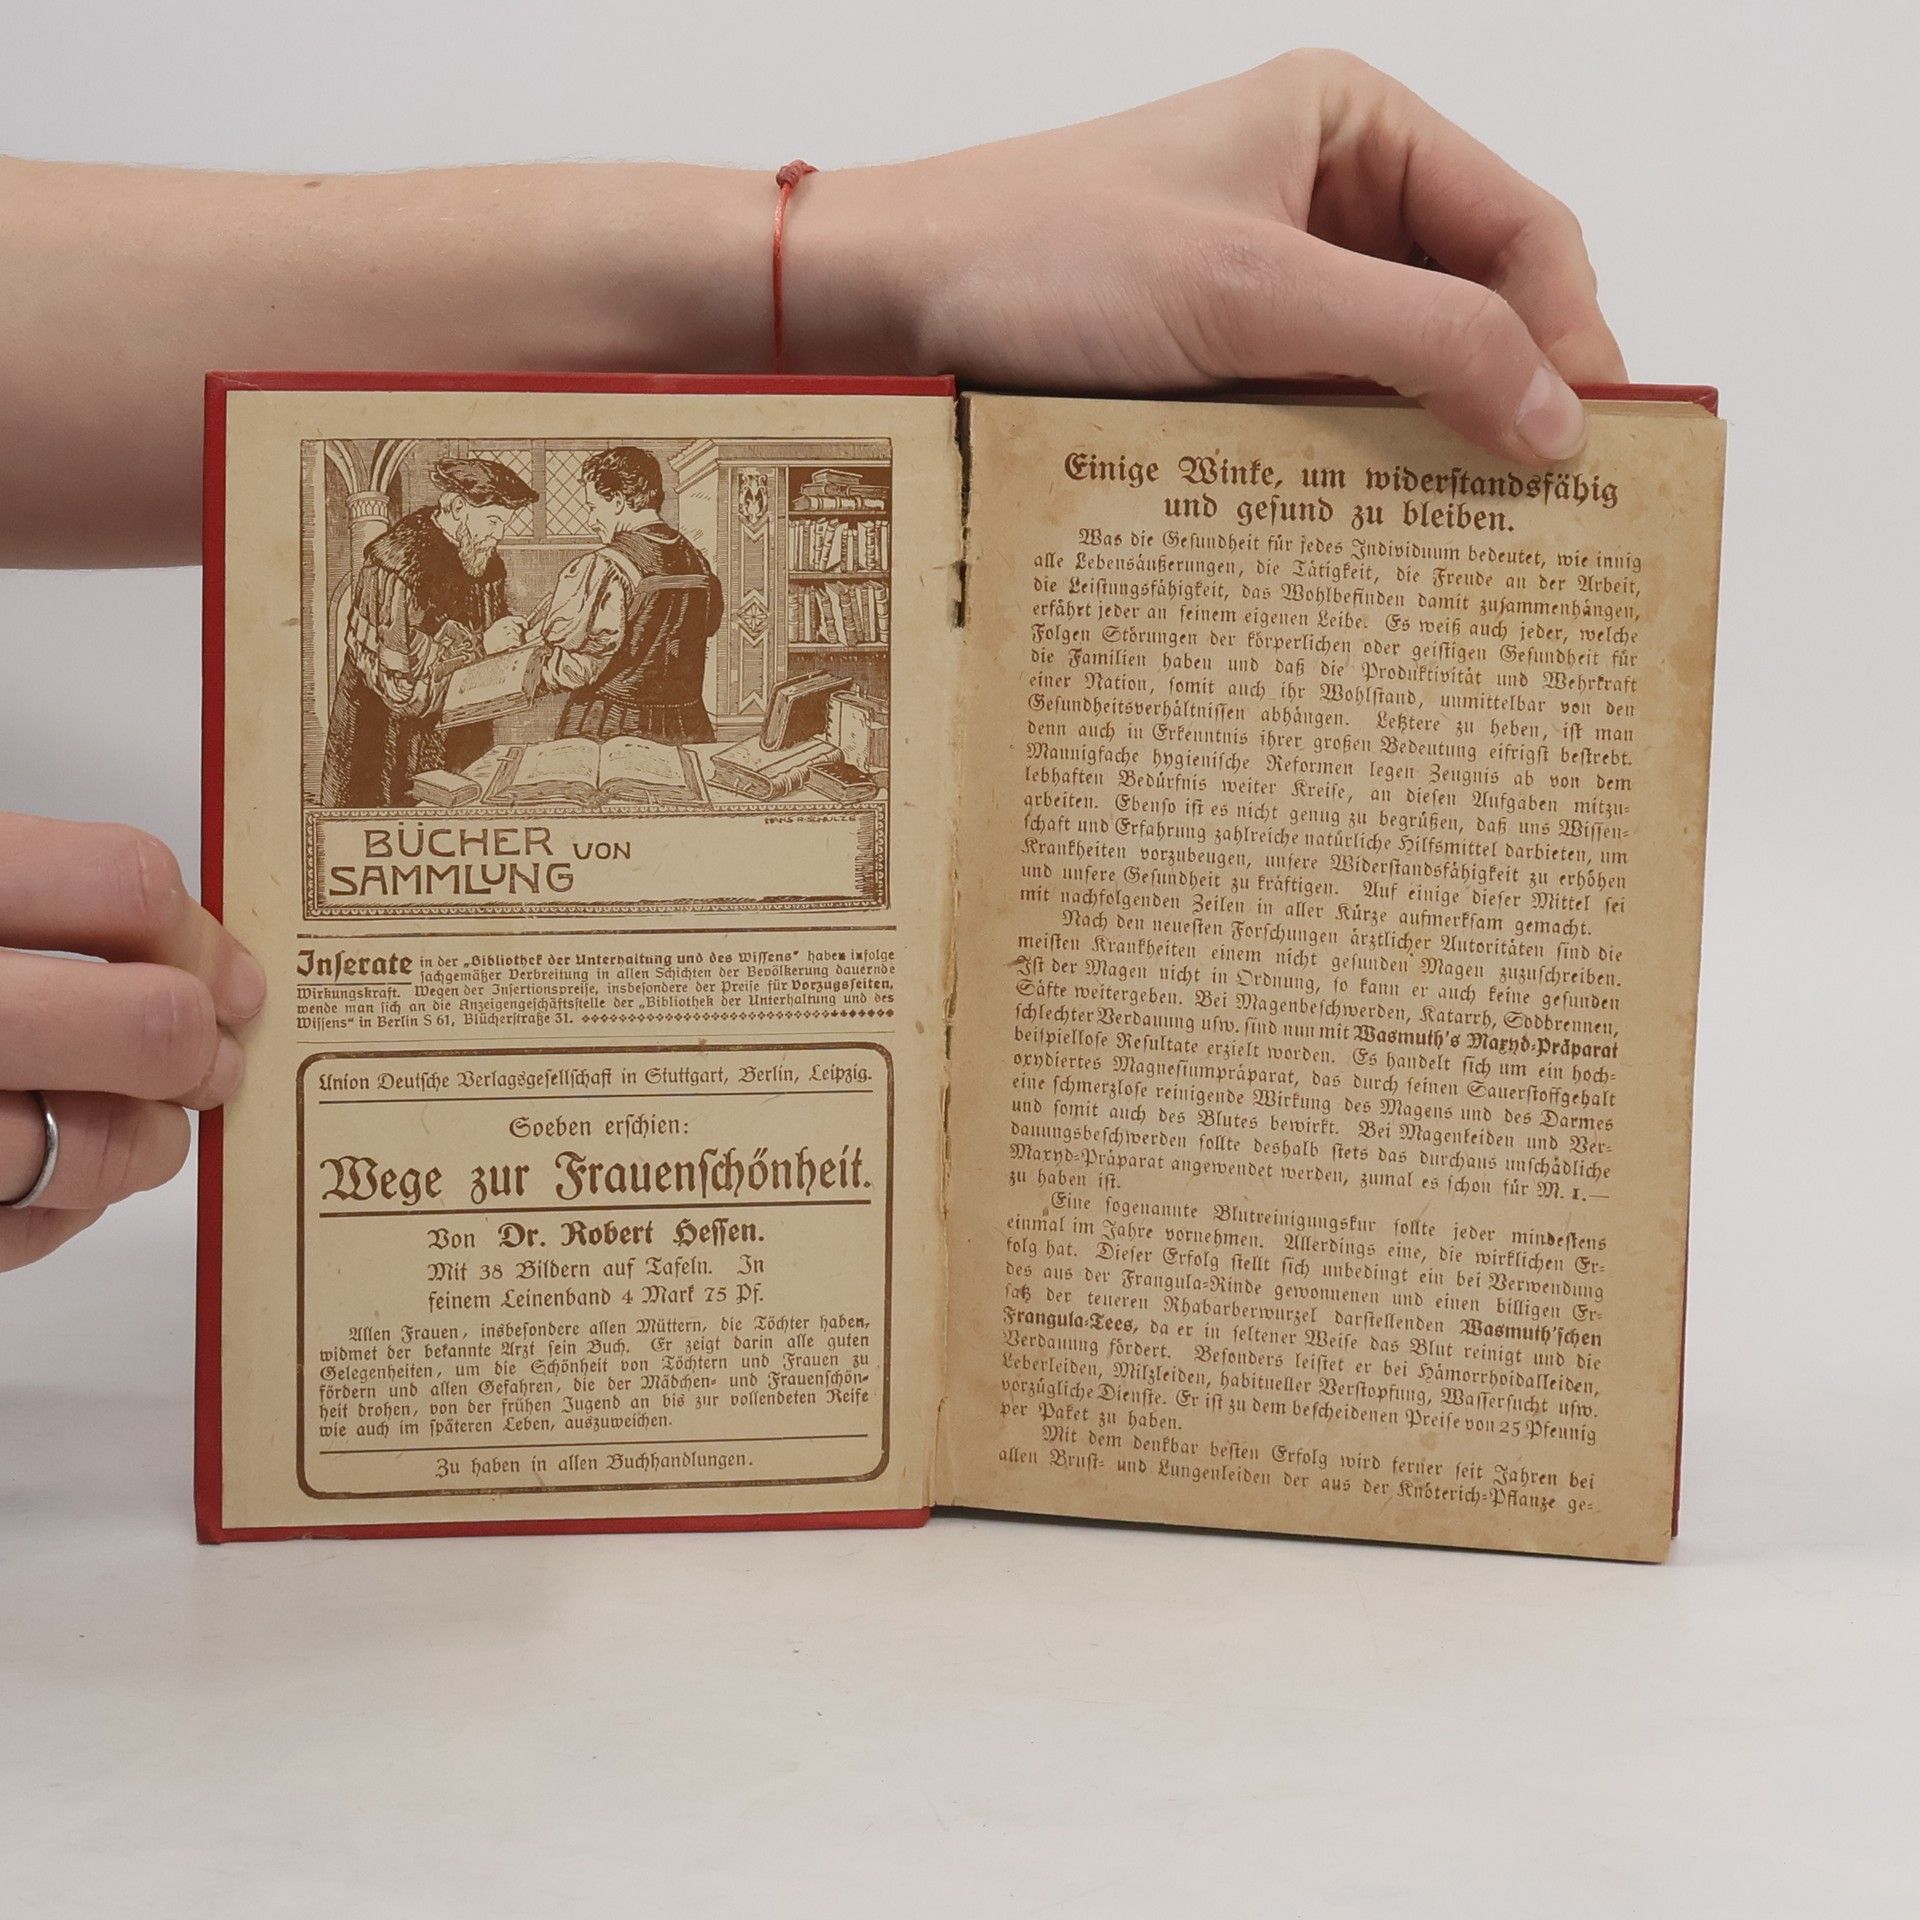 HANS A. SCHULZE
BÜCHER VON
SAMMLUNG
Inserate in der „Bibliothek der Unterhaltung und des Wissens“ haben infolge
sachgemäßer Verbreitung in allen Schichten der Bevölkerung dauernde
Wirkungskraft. Wegen der Insertionspreise, insbesondere der Preise für Vorzugsseiten,
wende man sich an die Anzeigengeschäftsstelle der „Bibliothek der Unterhaltung und des
Wissens“ in Berlin S 61, Blücherstraße 31.
Union Deutsche Verlagsgesellschaft in Stuttgart, Berlin, Leipzig.
Soeben erschien:
Wege zur Frauenschönheit.
Von Dr. Robert Hessen.
Mit 38 Bildern auf Tafeln. In
feinem Leinenband 4 Mark 75 Pf.
Allen Frauen, insbesondere allen Müttern, die Töchter haben,
widmet der bekannte Arzt sein Buch. Er zeigt darin alle guten
Gelegenheiten, um die Schönheit von Töchtern und Frauen zu
fördern und allen Gefahren, die der Mädchen- und Frauenschön-
heit drohen, von der frühen Jugend an bis zur vollendeten Reife
wie auch im späteren Leben, auszuweichen.
Zu haben in allen Buchhandlungen.
Einige Winke, um widerstandsfähig
und gesund zu bleiben.
Was die Gesundheit für jedes Individuum bedeutet, wie innig
alle Lebensäußerungen, die Tätigkeit, die Freude an der Arbeit,
die Leistungsfähigkeit, das Wohlbefinden damit zusammenhängen,
erfährt jeder an seinem eigenen Leibe. Es weiß auch jeder, welche
Folgen Störungen der körperlichen oder geistigen Gesundheit für
die Familien haben und daß die Produktivität und Wehrkraft
einer Nation, somit auch ihr Wohlstand, unmittelbar von den
Gesundheitsverhältnissen abhängen. Letztere zu heben, ist man
denn auch in Erkenntnis ihrer großen Bedeutung eifrigst bestrebt.
Mannigfache hygienische Reformen legen Zeugnis ab von dem
lebhaften Bedürfnis weiter Kreise, an diesen Aufgaben mitzu-
arbeiten. Ebenso ist es nicht genug zu begrüßen, daß uns Wissen-
schaft und Erfahrung zahlreiche natürliche Hilfsmittel darbieten, um
Krankheiten vorzubeugen, unsere Widerstandsfähigkeit zu erhöhen
und unsere Gesundheit zu kräftigen. Auf einige dieser Mittel sei
mit nachfolgenden Zeilen in aller Kürze aufmerksam gemacht.
Nach den neuesten Forschungen ärztlicher Autoritäten sind die
meisten Krankheiten einem nicht gesunden Magen zuzuschreiben.
Ist der Magen nicht in Ordnung, so kann er auch keine gesunden
Säfte weitergeben. Bei Magenbeschwerden, Katarrh, Sodbrennen,
schlechter Verdauung usw. sind nun mit Wasmuth's Maxyd-Präparat
beispiellose Resultate erzielt worden. Es handelt sich um ein hoch-
oxydiertes Magnesiumpräparat, das durch seinen Sauerstoffgehalt
eine schmerzlose reinigende Wirkung des Magens und des Darmes
und somit auch des Blutes bewirkt. Bei Magenleiden und Ver-
dauungsbeschwerden sollte deshalb stets das durchaus unschädliche
Maxyd-Präparat angewendet werden, zumal es schon für M. 1.—
zu haben ist.
Eine sogenannte Blutreinigungskur sollte jeder mindestens
einmal im Jahre vornehmen. Allerdings eine, die wirklichen Er-
folg hat. Dieser Erfolg stellt sich unbedingt ein bei Verwendung
des aus der Frangula-Rinde gewonnenen und einen billigen Er-
satz der teueren Rhabarberwurzel darstellenden Wasmuth'schen
Frangula-Tees, da er in seltener Weise das Blut reinigt und die
Verdauung fördert. Besonders leistet er bei Hämorrhoidalleiden,
Leberleiden, Milzleiden, habitueller Verstopfung, Wassersucht usw.
vorzügliche Dienste. Er ist zu dem bescheidenen Preise von 25 Pfennig
per Paket zu haben.
Mit dem denkbar besten Erfolg wird ferner seit Jahren bei
allen Brust- und Lungenleiden der aus der Knöterich-Pflanze ge-